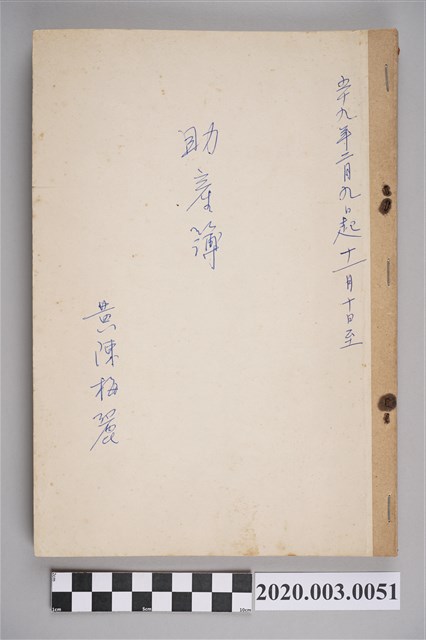 五十九年二月九日起十一月十日至
助產簿
黃陳梅麗
1cm 5cm 10cm
2020.003.0051